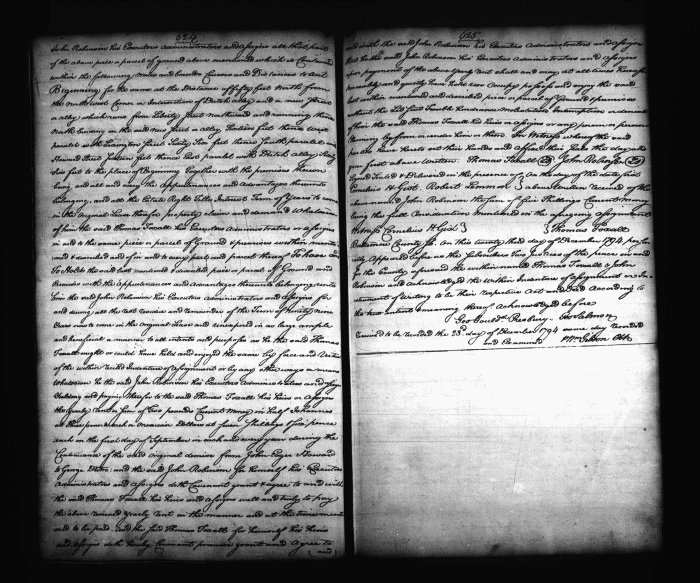 624
John Robinson his Executors Administrators and Assigns all that part
of the above piece or parcel of ground above mentioned which is Contained
within the following metes and bounds Courses and Distances to wit
Beginning for the same at the Distance of fifty feet North from
the North west Corner or Intersection of Dutch alley and a new
alley which runs from Liberty Street northward and running thence
North bounding on the said new feet alley feet thence
parallel with Lexington Street Sixty two feet thence South parallel with
Howard Street feet thence East parallel with Dutch alley Sixty
two feet to the place of Beginning Together with the premises thereon
being and all and every the Appurtenances and Advantages thereunto
belonging, and all the Estate Right Title Interest Term of Years to come
in the Original Lease thereof property claim and demand Whatsoever
of him the said Thomas Foxall his Executors Administrators or Assigns
in and to the same piece or parcel of Ground & premises within mentioned
and described and of in and to every part and parcel thereof To have and
To Hold the said last mentioned & described piece or parcel of Ground and
Premises with the Appurtenances and Advantages thereunto belonging unto
him the said John Robinson his Executors Administrators and Assigns for
and during all the rest residue and remainder of the Term of Ninety nine
Years now to come in the original Lease and unexpired in as large ample
and beneficial a manner to all intents and purposes as he the said Thomas
Foxall might or could have held and enjoyed the same by force and Virtue
of the within recited Indenture of Assignment or by any other ways or means
Whatsoever he the said John Robinson his Executors Administrators and Assigns
Yielding and paying therefor to the said Thomas Foxall his heirs or Assigns
the yearly rent or sum of Two pounds Current Money in half Johannes
at three pounds each or Mexican Dollars at seven Shillings & Six pence
each on the first day of September in each and every year during the
Continuance of the said original demise from John Eager Howard
to George and the said John Robinson for himself his Executors
Administrators and Assigns doth Covenant grant & agree to and with
the said Thomas Foxall his heirs and Assigns well and truly to pay
the above reserved yearly rent in the manner and at the times men
and to be paid. and the said Thomas Foxall for himself his heirs
and Assigns doth hereby Covenant promise grant and Agree to
and
625
and with the said John Robinson his Executors Administrators and Assigns
that he the said John Robinson his Executors Administrators and Assigns
upon payment of the above yearly rent shall and may at all times hereafter
peaceably and quietly have hold use occupy possess and enjoy the said
last within mentioned and described piece or parcel of Ground & premises
without the Let Suit Trouble hindrance molestation Interruption or denial
of him the said Thomas Foxall his heirs or Assigns or any person or persons
claiming by from or under him or them. In Witness whereof the said
parties have hereto set their hands and affixed their Seals the day and
year first above Written. Thomas Foxall (LS) John Robinson (LS)
Signed Sealed & Delivered in the presence of On the day of the date first
Cornelius H. Gist. Robert Lemmon above written received of the
above named John Robinson the Sum of five Shillings Current Money
being the full Consideration mentioned in the aforegoing Assignment
Witness Cornelius H. Gist Thomas Foxall
Baltimore County Sc. On this twenty third day of December 1794 person
ally Appeared before us the Subscribers Two Justices of the peace in and
for the County aforesaid the within named Thomas Foxall & John
Robinson and Acknowledged the Within Indenture of Assignment or In
strument of Writing to be their respective Act and Deed According to
the true intent & meaning thereof Acknowledged before
Geo Gould Presbury. Geo Salmon
received to be recorded the 23d day of December 1794 same day recorded
and Examined Wm Gibson Clk